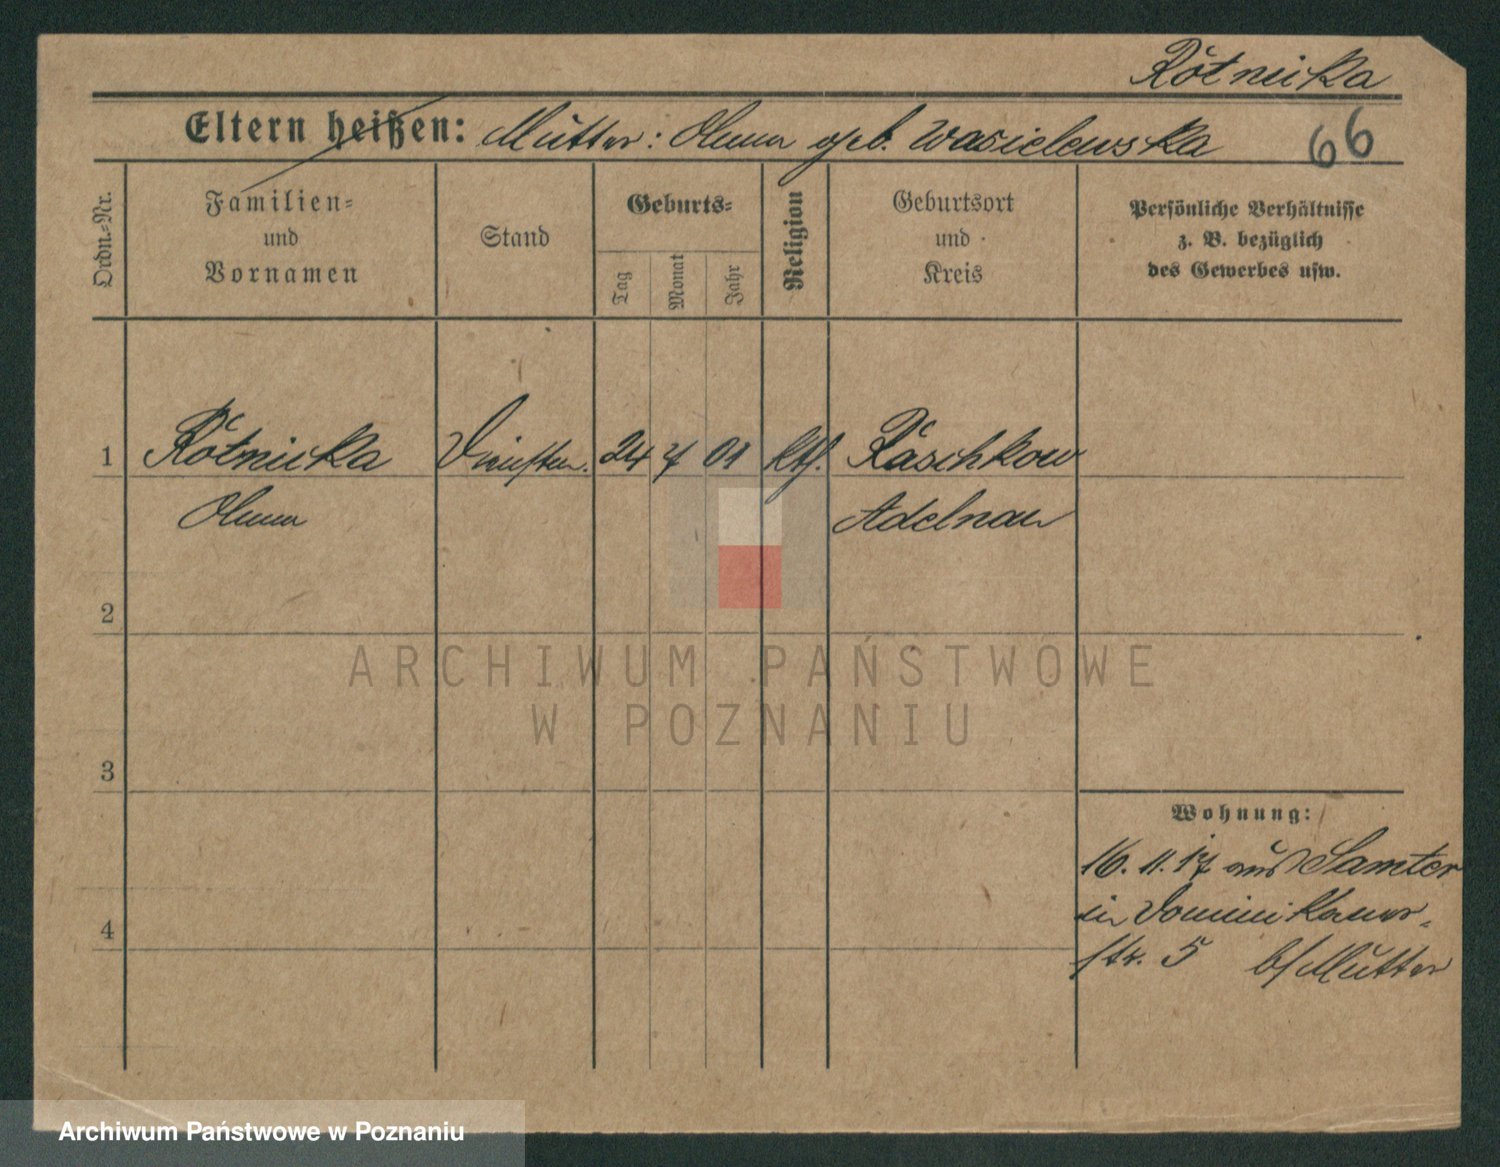 Rótnicka
Eltern heißen: Mutter: Anna geb. Wasielewska
66
Ordn.-Nr.
Familien-
und
Vornamen
Stand
Geburts-
Tag
Monat
Jahr
Religion
Geburtsort
und
Kreis
Persönliche Verhältnisse
z. B. bezüglich
des Gewerbes usw.
1 Rótnicka 24 7 01 kth. Raschkow
Anna Adelnau
2
3
4
Wohnung:
16.11.17 aus Samter
in Dominikaner-
str. 5 b/Mutter
ARCHIWUM PAŃSTWOWE
W POZNANIU
Archiwum Państwowe w Poznaniu